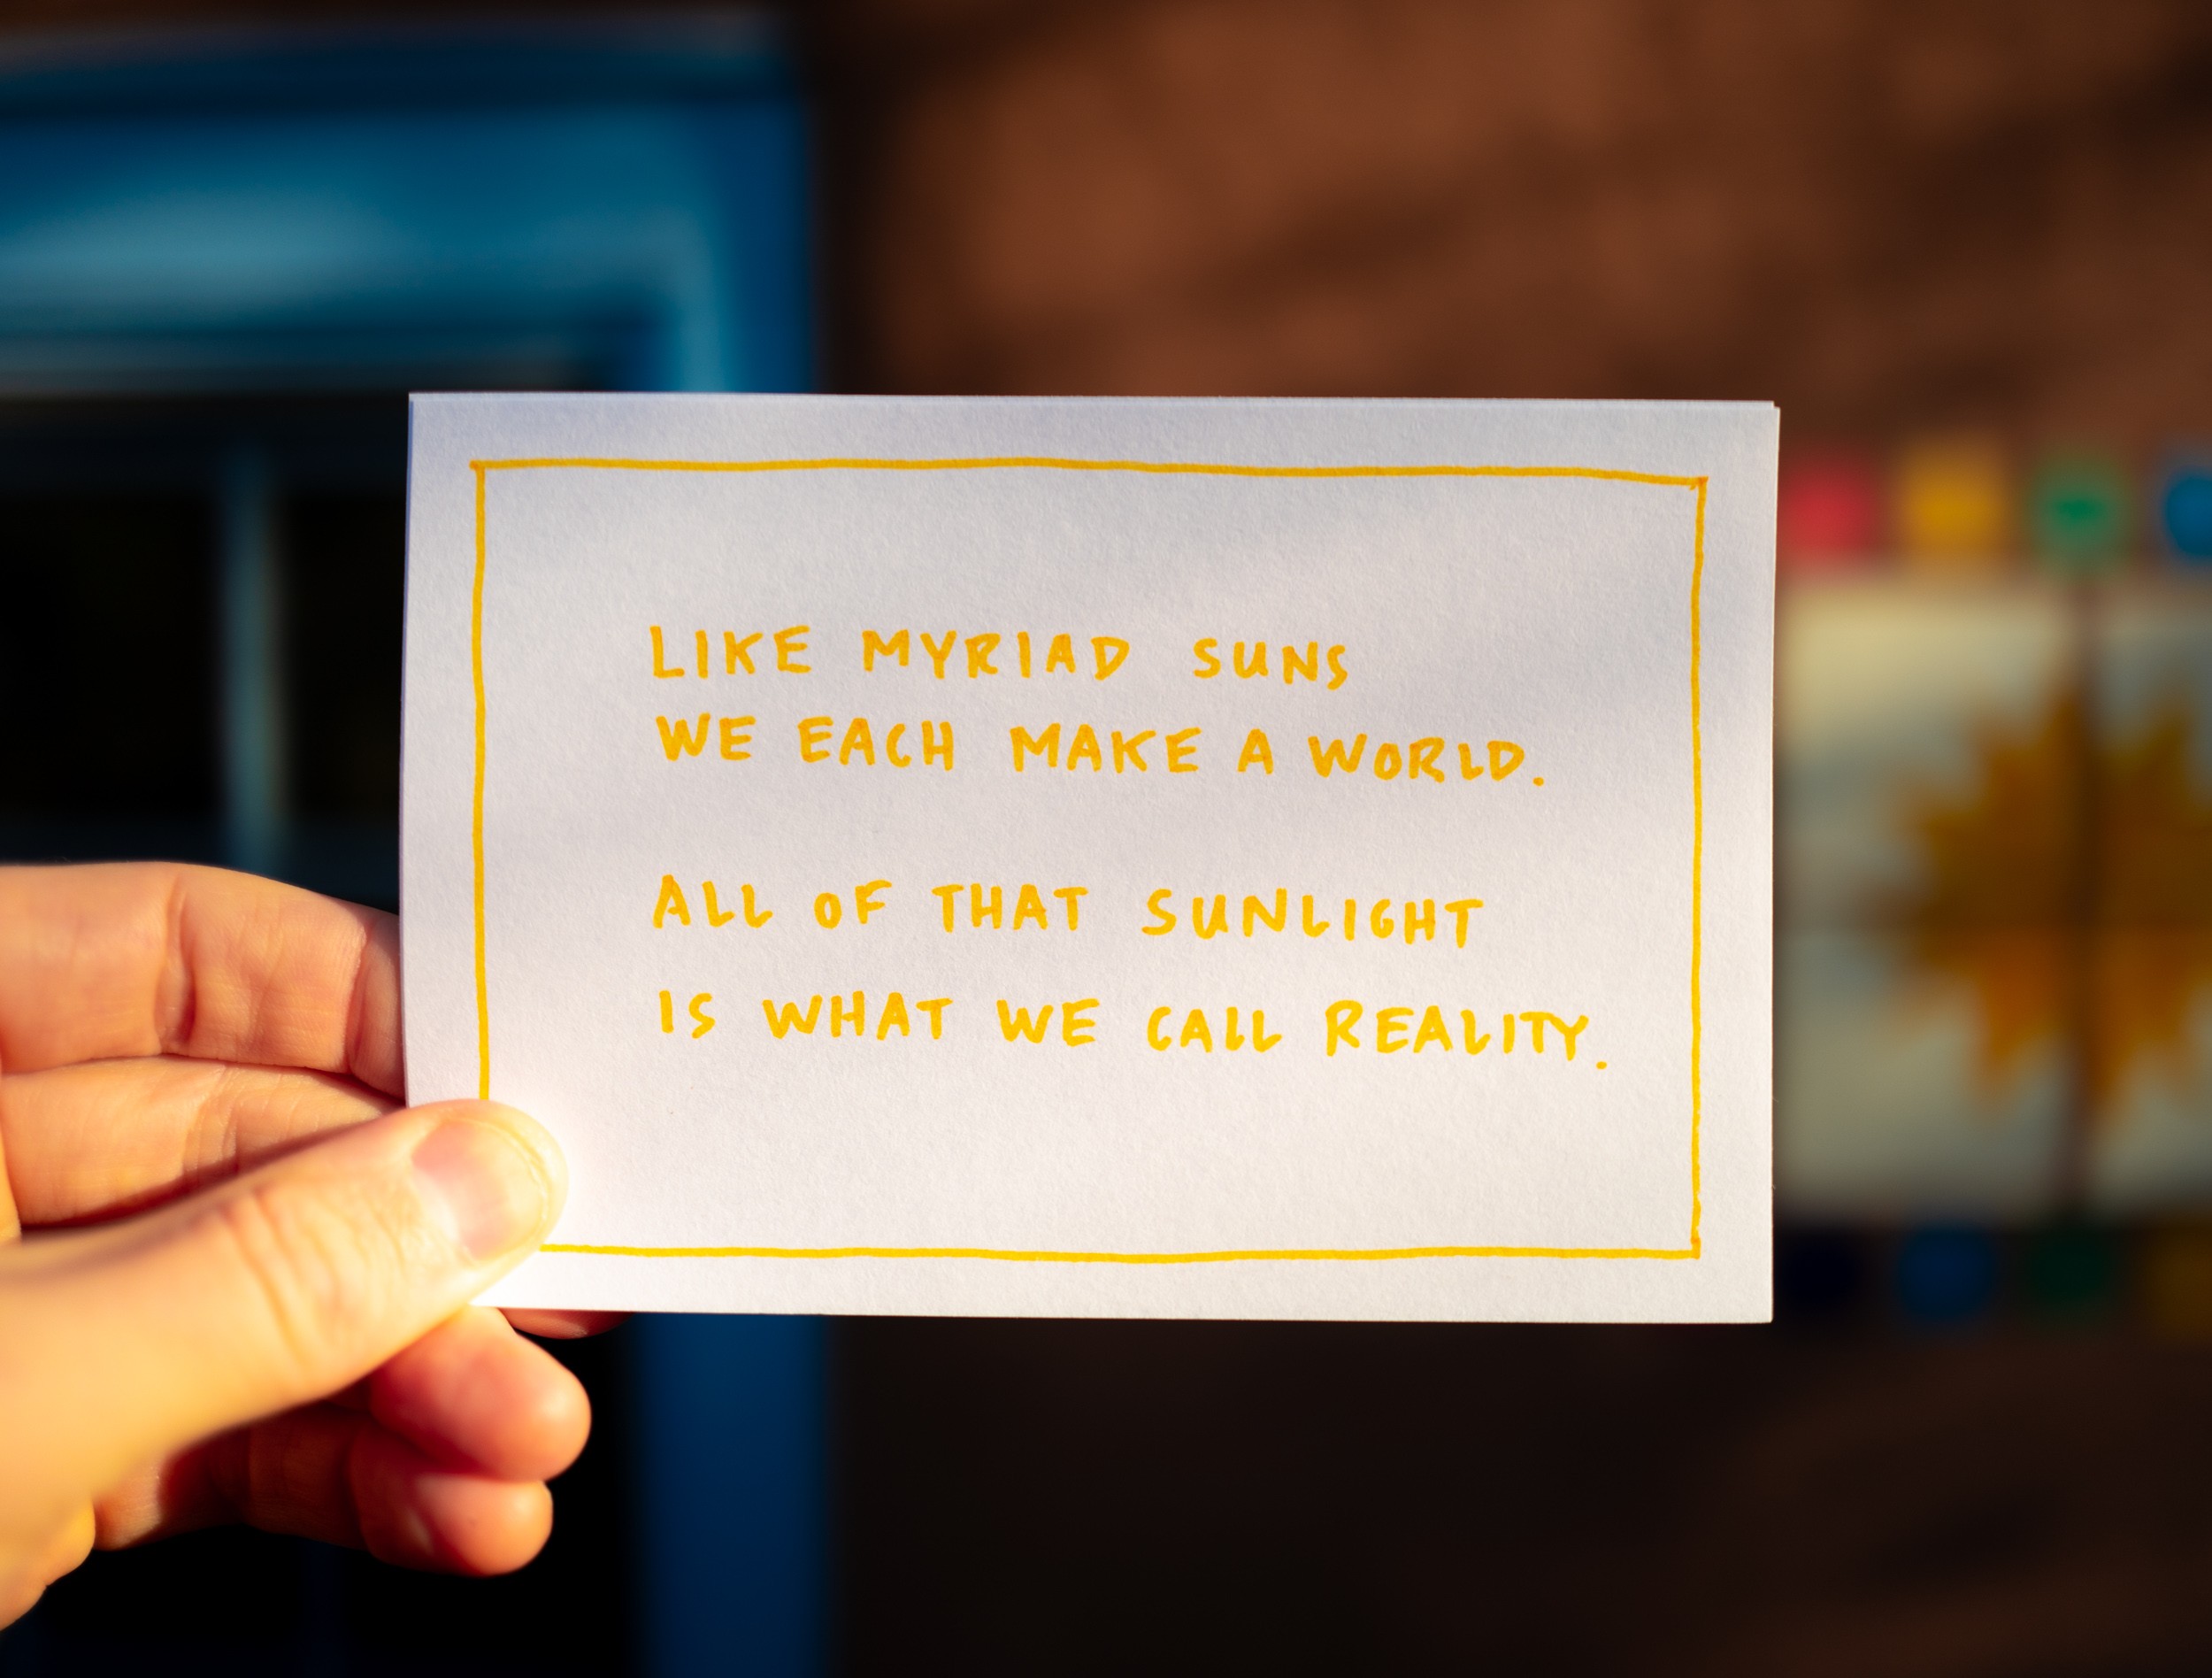 LIKE MYRIAD SUNS
WE EACH MAKE A WORLD.
ALL OF THAT SUNLIGHT
IS WHAT WE CALL REALITY.